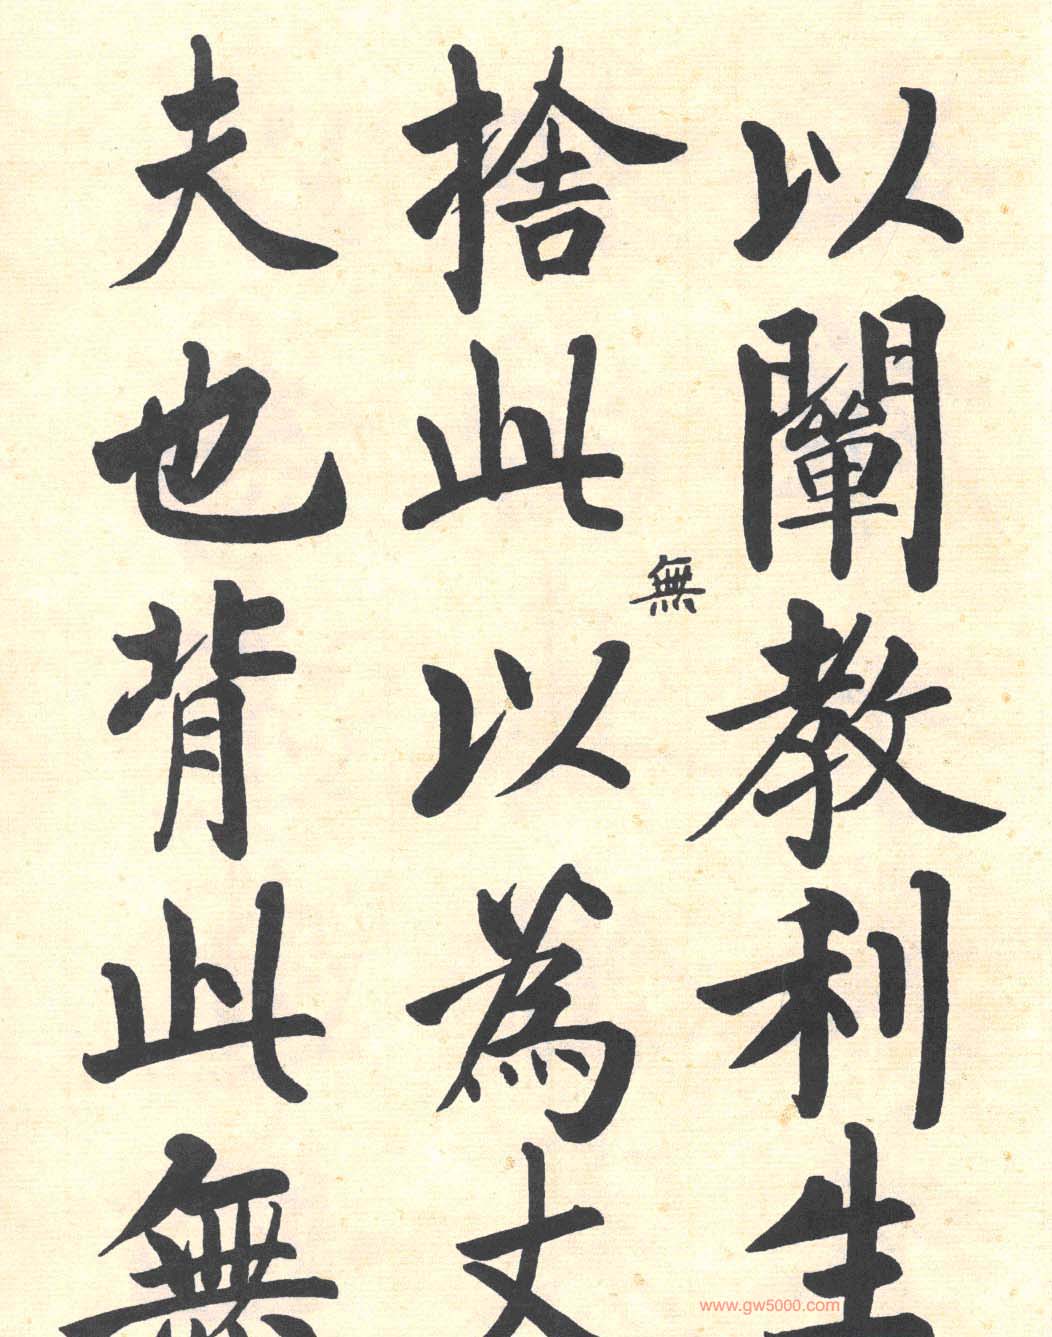 以闡教利生
捨此無以為丈
夫也背此無
www.gw5000.com